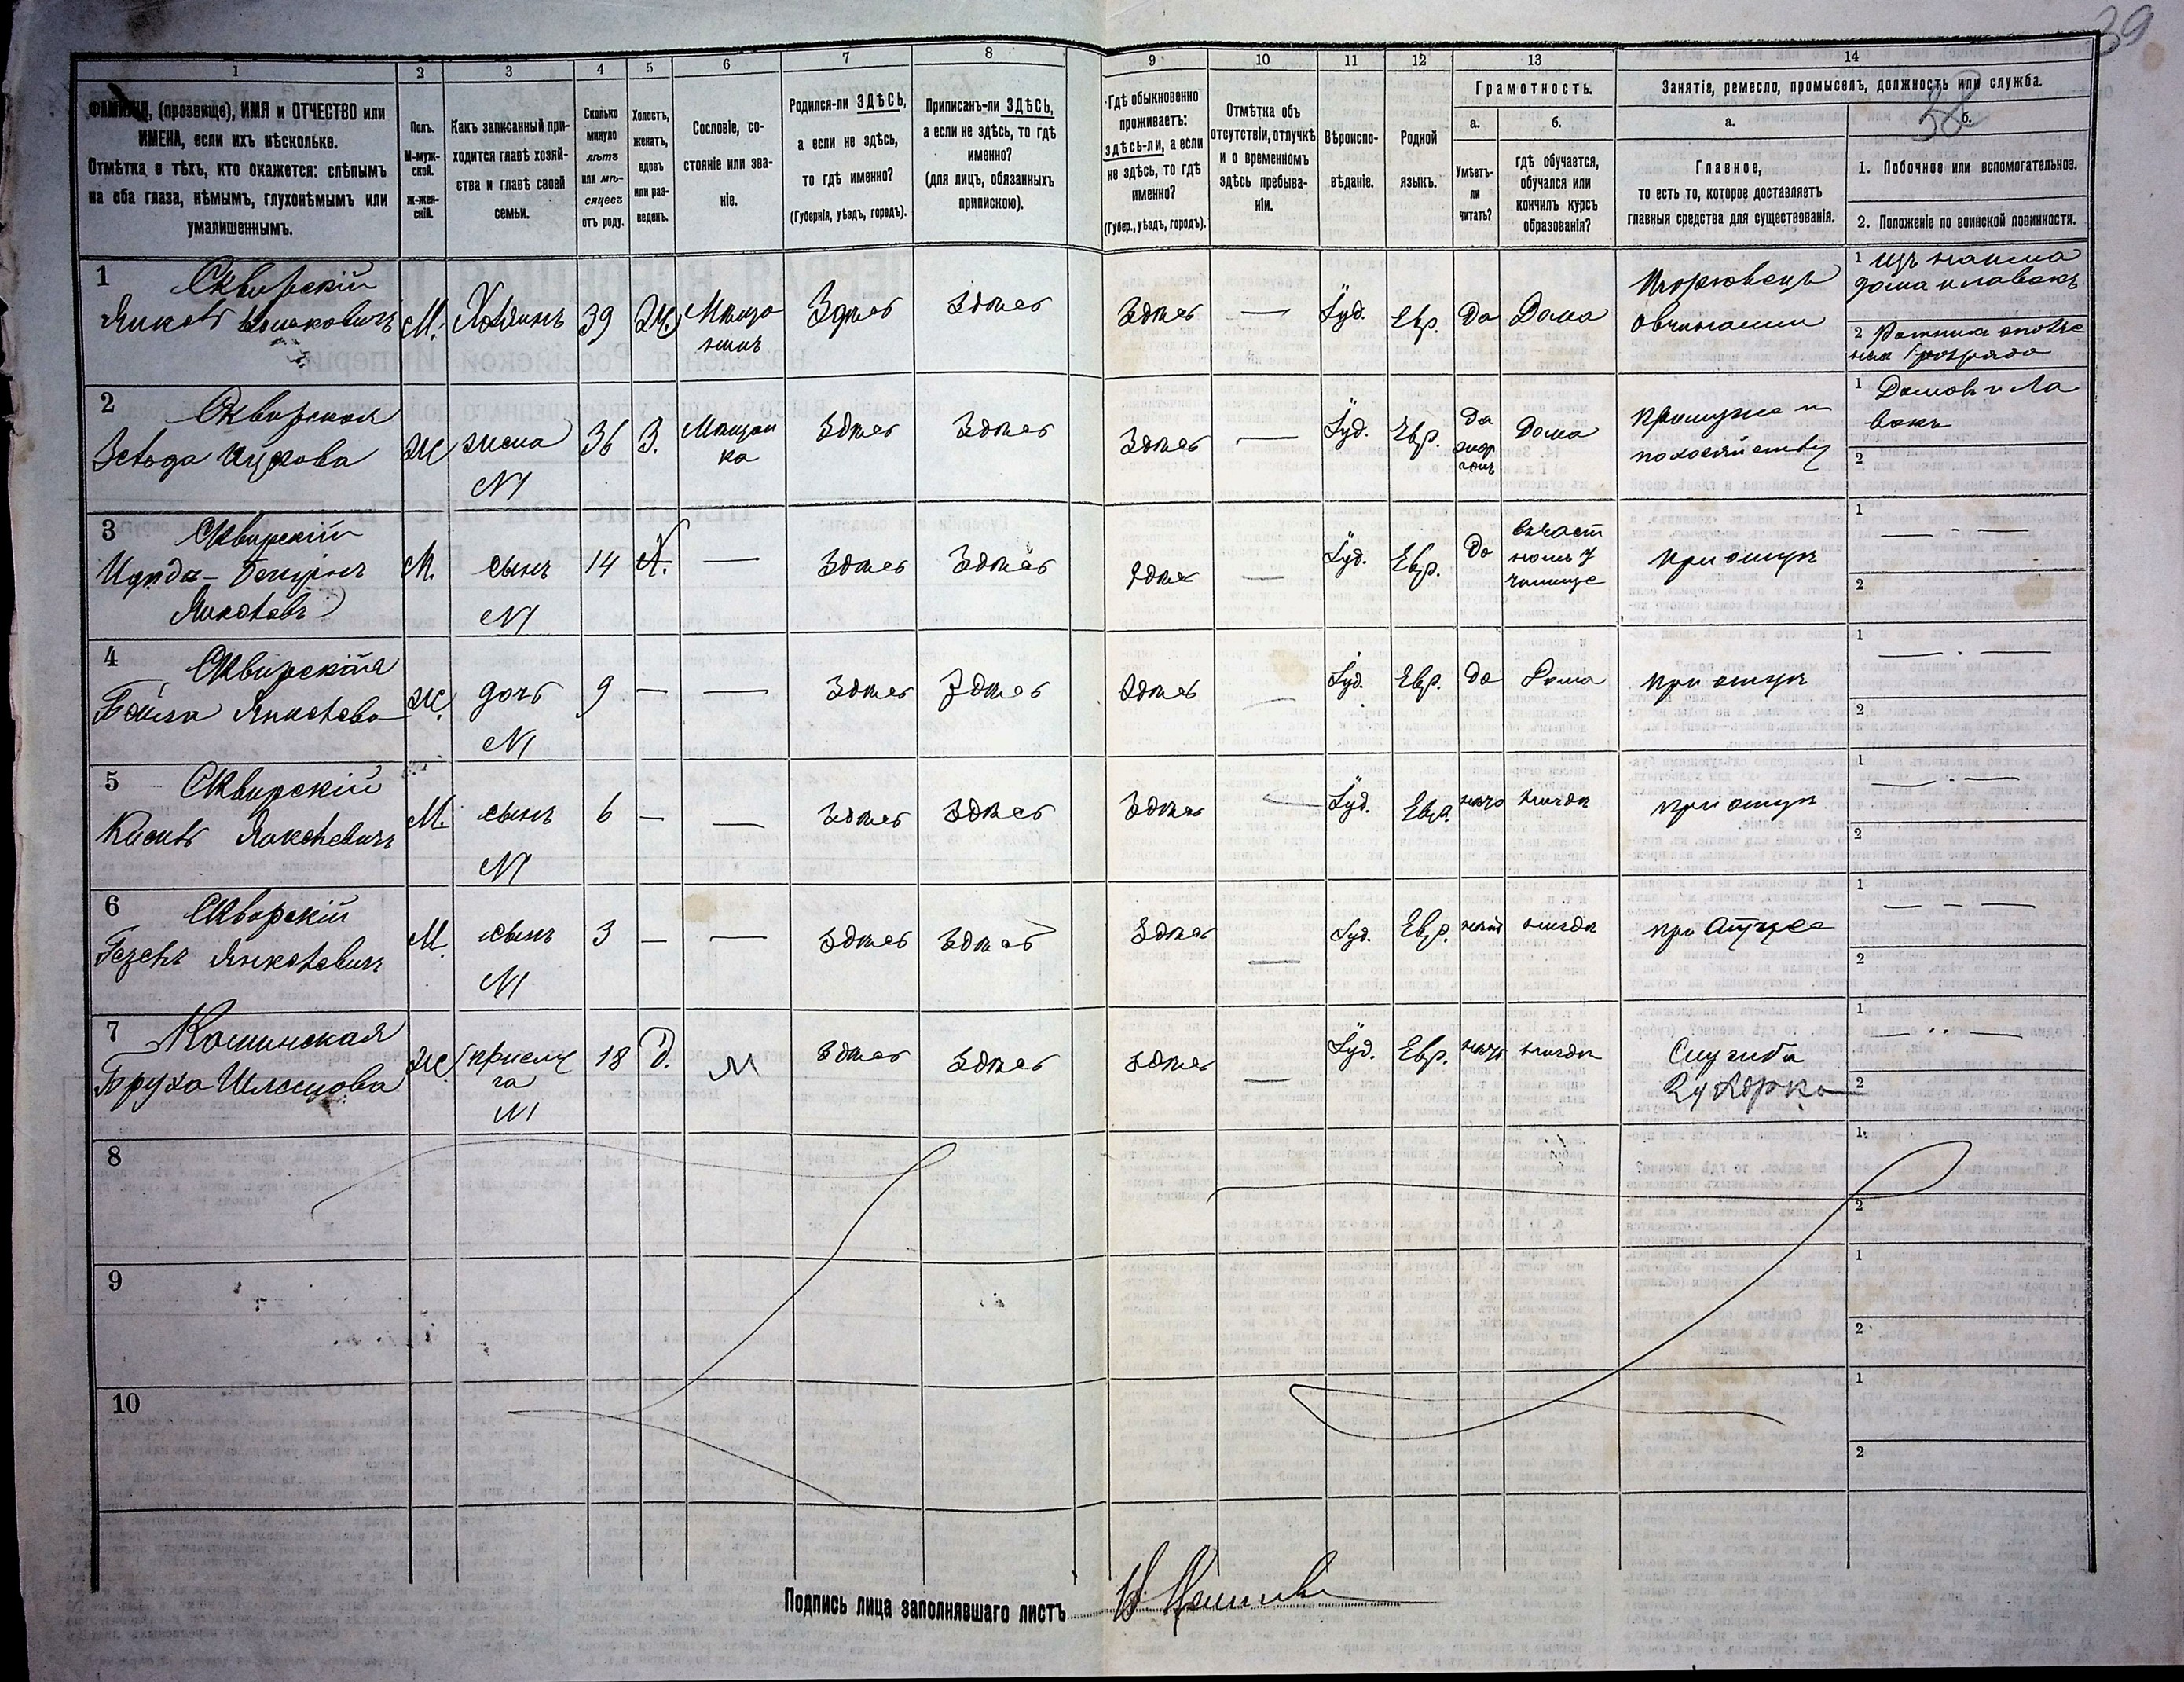 39
38
1
2
3
4
5
6
7
8
9
10
11
12
13
14
ФАМИЛІЯ, (прозвище), ИМЯ и ОТЧЕСТВО или
ИМЕНА, если ихъ нѣсколько.
Отмѣтка о тѣхъ, кто окажется: слѣпымъ
на оба глаза, нѣмымъ, глухонѣмымъ или
умалишеннымъ.
Полъ.
М-муж-
ской.
Ж-жен-
скій.
Какъ записанный при-
ходится главѣ хозяй-
ства и главѣ своей
семьи.
Сколько
минуло
лѣтъ
или мѣ-
сяцевъ
отъ роду.
Холостъ,
женатъ,
вдовъ
или раз-
веденъ.
Сословіе, со-
стояніе или зва-
ніе.
Родился-ли ЗДѢСЬ,
а если не здѣсь,
то гдѣ именно?
(Губернія, уѣздъ, городъ).
Приписанъ-ли ЗДѢСЬ,
а если не здѣсь, то гдѣ
именно?
(для лицъ, обязанныхъ
припискою).
Гдѣ обыкновенно
проживаетъ:
здѣсь-ли, а если
не здѣсь, то гдѣ
именно?
(Губер., уѣздъ, городъ).
Отмѣтка объ
отсутствіи, отлучкѣ
и о временномъ
здѣсь пребыва-
ніи.
Вѣроиспо-
вѣданіе.
Родной
языкъ.
Грамотность.
а.
б.
Умѣетъ-
ли
читать?
гдѣ обучается,
обучался или
кончилъ курсъ
образованія?
Занятіе, ремесло, промыселъ, должность или служба.
а.
б.
Главное,
то есть то, которое доставляетъ
главныя средства для существованія.
1. Побочное или вспомогательное.
2. Положеніе по воинской повинности.
1 Сквирскій
М. Хозяинъ 39 Ж. Мѣща
нинъ
Здѣсь Здѣсь Здѣсь — Іуд. Евр. Да Дома
Торговецъ
овчинами
1 Изъ найма
дома и лавокъ
2 Ратникъ ополче
нія I розряда
2 Сквирская
Ж жена 36 З. Мѣщан
ка
N1
Здѣсь Здѣсь Здѣсь — Іуд. Евр. Да
Дома
При мужѣ и
по хозяйству
1 Домовъ и Ла
вокъ
2
3 Сквирскій
М. сынъ 14 Х. —
N1
Здѣсь Здѣсь Здѣсь — Іуд. Евр. Да
въ част
номъ у
чилище
при отцѣ
1 — - —
2
4 Сквирская
Бейла
Ж. дочь 9 — —
N1
Здѣсь Здѣсь Здѣсь — Іуд. Евр. Да Дома
при отцѣ
1 — . —
2
5 Сквирскій
М. сынъ 6 — —
N1
Здѣсь Здѣсь Здѣсь — Іуд. Евр. нигдѣ
при отцѣ
1 — . —
2
6 Сквирскій
М. сынъ 3 — —
N1
Здѣсь Здѣсь Здѣсь — Іуд. Евр. нигдѣ
при Отцѣ
1 — - —
2
7
Бруха
Ж прислу
га
N1
18 Д. М
Здѣсь Здѣсь Здѣсь — Іуд. Евр. нигдѣ
Служба
Кухарка
1 — .. —
2
8
1
2
9
1
2
10
1
2
Подпись лица заполнявшаго листъ